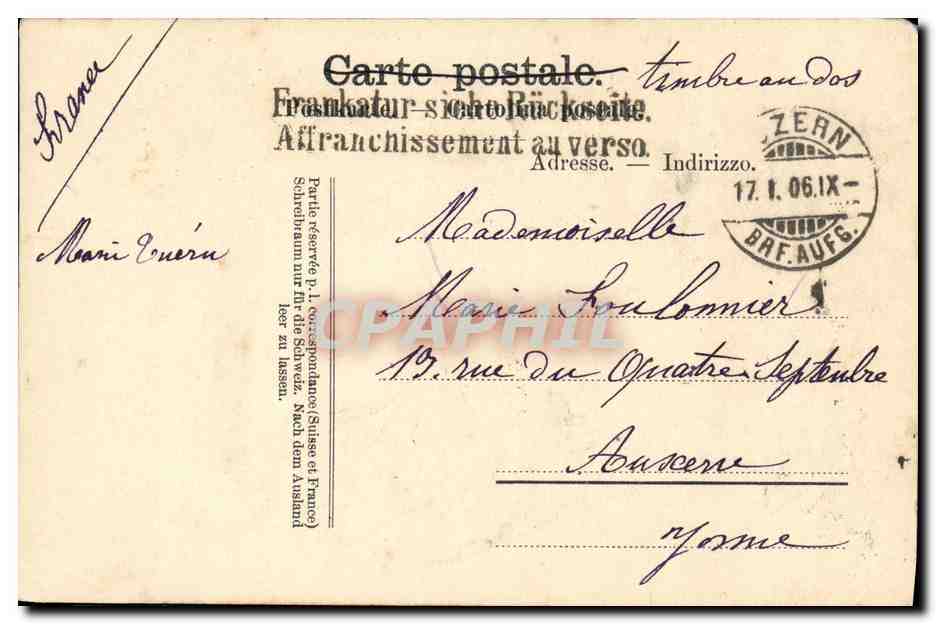 Carte postale. timbre au dos
Frankatur siehe Rückseite.
Postkarte. — Cartolina postale.
Affranchissement au verso.
Adresse. — Indirizzo.
LUZERN
17. I. 06. IX –
BRF. AUFG.
Partie réservée p. l. correspondance (Suisse et France)
Schreibraum nur für die Schweiz. Nach dem Ausland
leer zu lassen.
Mademoiselle
Marie Foulonnier
13. rue du Quatre Septenbre
Auxerre
Yonne
CPAPHIL